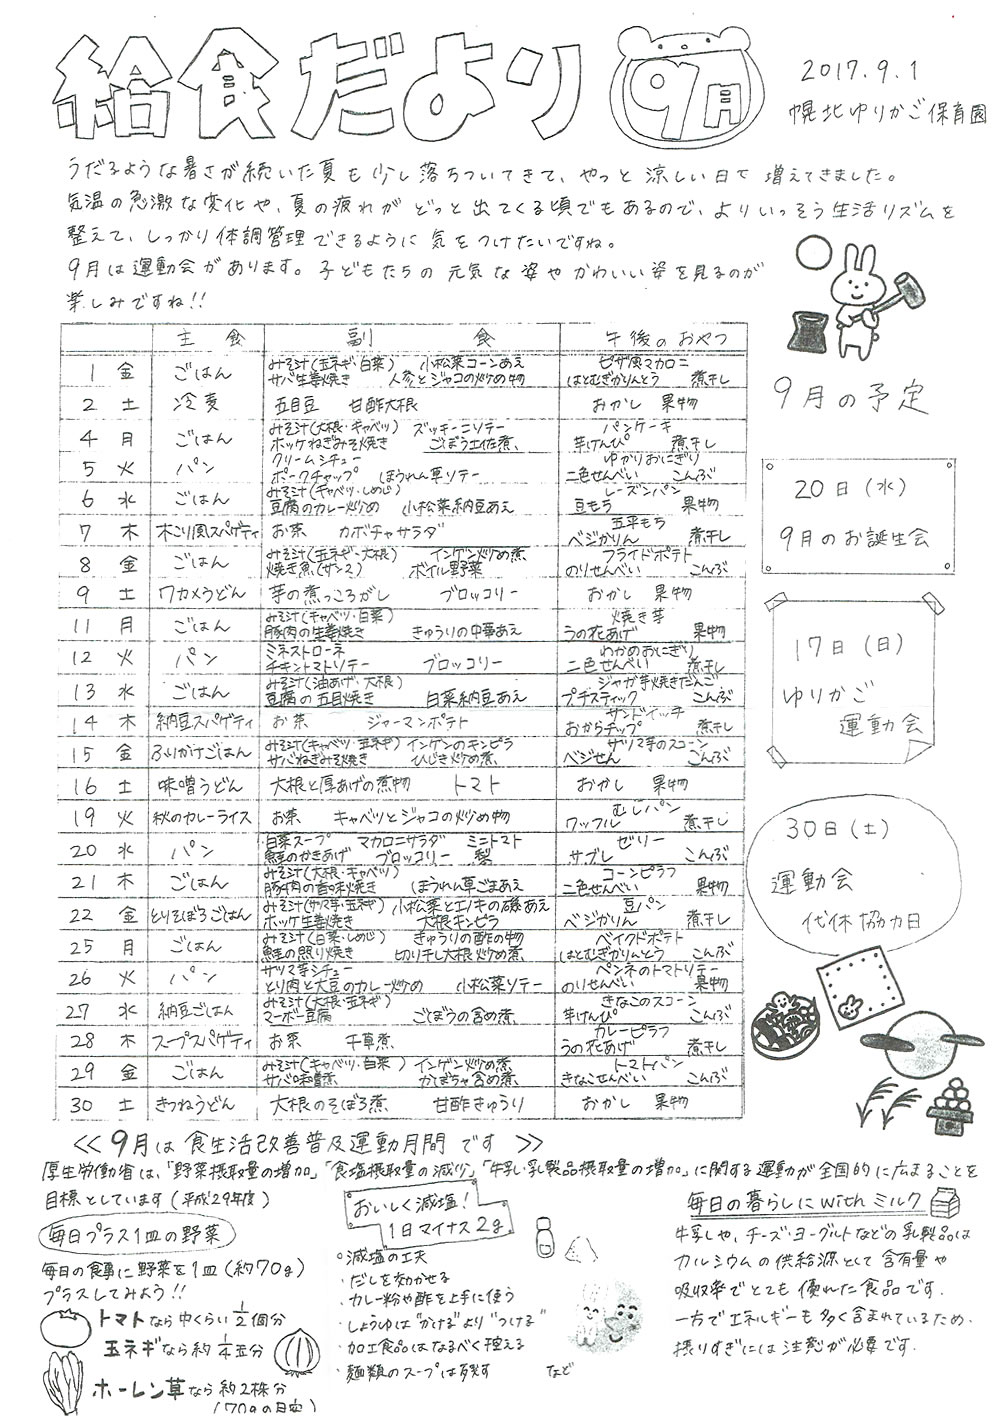 給食だより 9月
2017.9.1
幌北ゆりかご保育園
うだるような暑さが続いた夏も少し落ちついてきて、やっと涼しい日で増えてきました。
気温の急激な変化や、夏の疲れがどっと出てくる頃でもあるので、よりいっそう生活リズムを
整えて、しっかり体調管理できるように気をつけたいですね。
9月は運動会があります。子どもたちの元気な姿やかわいい姿を見るのが
楽しみですね!!
主食 副食 午後のおやつ
1 金 ごはん みそ汁(玉ネギ・白菜) 小松菜コーンあえ ピザ風マカロニ
サバ生姜焼き 人参とジャコの炒め物 はとむぎかりんとう 煮干し
2 土 冷麦 五目豆 甘酢大根 おかし 果物
4 月 ごはん みそ汁(大根・キャベツ) ズッキーニソテー パンケーキ
ホッケねぎみそ焼き ごぼう土佐煮 芋けんぴ 煮干し
5 火 パン クリームシチュー ゆかりおにぎり
ポークチャップ ほうれん草ソテー 二色せんべい こんぶ
6 水 ごはん みそ汁(キャベツ・しめじ) レーズンパン
豆腐のカレー炒め 小松菜納豆あえ 豆もち 果物
7 木 木こり風スパゲティ お茶 カボチャサラダ 五平もち
ベジかりん 煮干し
8 金 ごはん みそ汁(玉ネギ・大根) インゲン炒め煮 フライドポテト
焼き魚(サンマ) ボイル野菜 のりせんべい こんぶ
9 土 ワカメうどん 芋の煮っころがし ブロッコリー おかし 果物
11 月 ごはん みそ汁(キャベツ・白菜) 焼き芋
豚肉の生姜焼き きゅうりの中華あえ うの花あげ 果物
12 火 パン ミネストローネ わかめおにぎり
チキントマトソテー ブロッコリー 二色せんべい 煮干し
13 水 ごはん みそ汁(油あげ・大根) ジャガ芋焼きだんご
豆腐の五目焼き 白菜納豆あえ プチスティック こんぶ
14 木 納豆スパゲティ お茶 ジャーマンポテト サンドイッチ
おからチップ 煮干し
15 金 ふりかけごはん みそ汁(キャベツ・玉ネギ) インゲンのキンピラ サツマ芋のスコーン
サバねぎみそ焼き ひじき炒め煮 ベジせん こんぶ
16 土 味噌うどん 大根と厚あげの煮物 トマト おかし 果物
19 火 秋のカレーライス お茶 キャベツとジャコの炒め物 むしパン
ワッフル 煮干し
20 水 パン 白菜スープ マカロニサラダ ミニトマト ゼリー
鮭のかきあげ ブロッコリー 梨 サブレ こんぶ
21 木 ごはん みそ汁(大根・キャベツ) コーンピラフ
豚肉の香味焼き ほうれん草ごまあえ 二色せんべい 果物
22 金 とりそぼろごはん みそ汁(サツマ芋・玉ネギ) 小松菜とエノキの磯あえ 豆パン
ホッケ生姜焼き 大根キンピラ ベジかりん 煮干し
25 月 ごはん みそ汁(白菜・しめじ) きゅうりの酢の物 ベイクドポテト
鮭の照り焼き 切り干し大根炒め煮 はとむぎかりんとう こんぶ
26 火 パン サツマ芋シチュー ペンネのトマトソテー
とり肉と大豆のカレー炒め 小松菜ソテー のりせんべい 果物
27 水 納豆ごはん みそ汁(大根・玉ネギ) きなこのスコーン
マーボー豆腐 ごぼうの含め煮 芋けんぴ こんぶ
28 木 スープスパゲティ お茶 千草煮 カレーピラフ
うの花あげ 煮干し
29 金 ごはん みそ汁(キャベツ・白菜) インゲン炒め煮 トマトパン
サバ味噌煮 かぼちゃ含め煮 きなこせんべい こんぶ
30 土 きつねうどん 大根のそぼろ煮 甘酢きゅうり おかし 果物
9月の予定
20日(水)
9月のお誕生会
17日(日)
ゆりかご
運動会
30日(土)
運動会
代休協力日
≪9月は食生活改善普及運動月間です≫
厚生労働省は、「野菜摂取量の増加」「食塩摂取量の減少」「牛乳・乳製品摂取量の増加」に関する運動が全国的に広まることを
目標としています(平成29年度)
毎日プラス1皿の野菜
毎日の食事に野菜を1皿(約70g)
プラスしてみよう!!
トマトなら中くらい1/2個分
玉ネギなら約1/4玉分
ホーレン草なら約2株分
(70gの目安)
おいしく減塩!
1日マイナス2g
○減塩の工夫
・だしを効かせる
・カレー粉や酢を上手に使う
・しょうゆは"かける"より"つける"
・加工食品はなるべく控える
・麺類のスープは残す など
毎日の暮らしにwithミルク
牛乳や、チーズ・ヨーグルトなどの乳製品は
カルシウムの供給源として含有量や
吸収率でとても優れた食品です。
一方でエネルギーも多く含まれているため、
摂りすぎには注意が必要です。